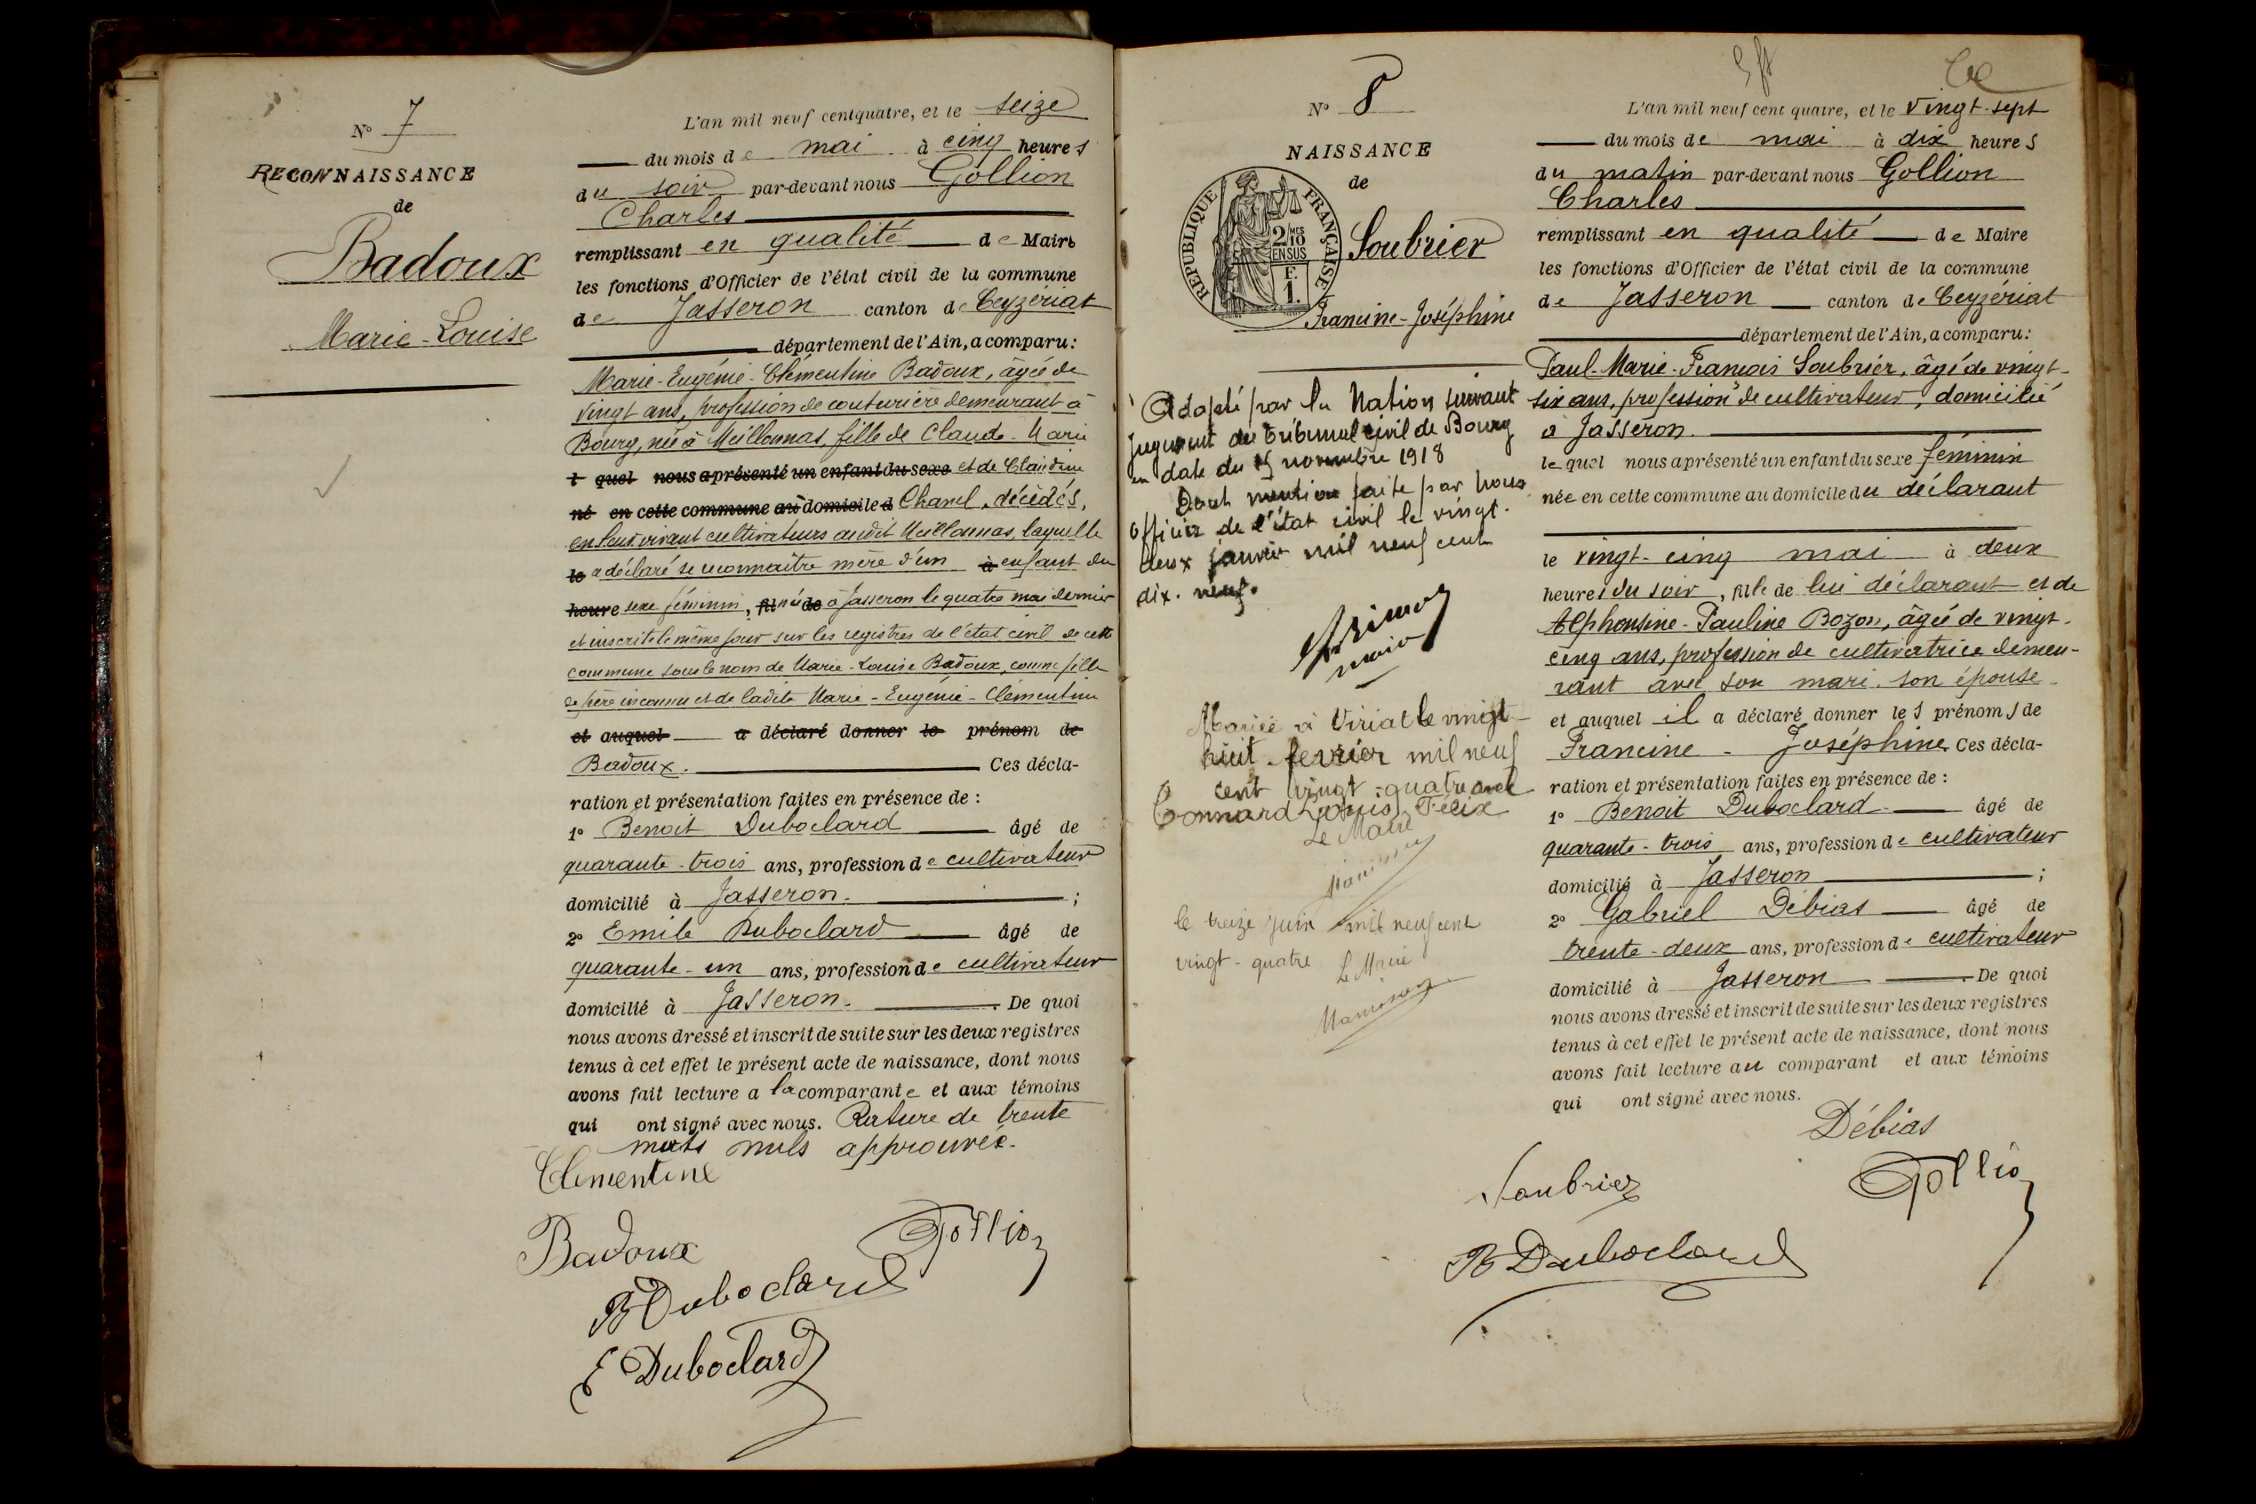 N° 7
RECONNAISSANCE
de
Badoux
Marie-Louise
L'an mil neuf cent quatre, et le seize
du mois de mai à cinq heures
du soir par-devant nous Gollion
Charles
remplissant en qualité de Maire
les fonctions d'Officier de l'état civil de la commune
de Jasseron canton de Ceyzériat
département de l'Ain, a comparu:
Marie-Eugénie-Clémentine Badoux, âgée de
vingt ans, profession de couturière demeurant à
Bourg, née à Meillonnas, fille de Claude-Marie
l quel nous a présenté un enfant du sexe et de Claudine
né en cette commune au domicile d Chanel, décédés,
en leur vivant cultivateurs audit Meillonnas, laquelle
le a déclaré se reconnaître mère d'un à enfant du
heure sexe féminin, fil née de à Jasseron le quatre mai dernier
et inscrite le même jour sur les registres de l'état civil de cette
commune sous le nom de Marie-Louise Badoux, comme fille
de père inconnu et de ladite Marie-Eugénie-Clémentine
et auquel a déclaré donner le prénom de
Badoux. Ces décla-
ration et présentation faites en présence de :
1° Benoît Duboclard âgé de
quarante-trois ans, profession de cultivateur
domicilié à Jasseron. ;
2° Emile Duboclard âgé de
quarante-un ans, profession de cultivateur
domicilié à Jasseron. De quoi
nous avons dressé et inscrit de suite sur les deux registres
tenus à cet effet le présent acte de naissance, dont nous
avons fait lecture a la comparante et aux témoins
qui ont signé avec nous. Rature de trente
mots nuls approuvée.
Clementine
Badoux
Gollion
B Duboclard
E Duboclard
N° 8
NAISSANCE
de
RÉPUBLIQUE FRANÇAISE
2/10 MES
EN SUS
F.
1.
Soubrier
Francine-Joséphine
Adopté par la Nation suivant
jugement du Tribunal civil de Bourg
en date du 15 novembre 1918
Dont mention faite par nous
officier de l'état civil le vingt-
deux janvier mil neuf cent
dix-neuf.
Mariée à Viriat le vingt-
huit février mil neuf
cent vingt-quatre avec
Connard Louis Félix
Le Maire
le treize juin mil neuf cent
vingt-quatre Le Maire
L'an mil neuf cent quatre, et le vingt-sept
du mois de mai à dix heures
du matin par-devant nous Gollion
Charles
remplissant en qualité de Maire
les fonctions d'Officier de l'état civil de la commune
de Jasseron canton de Ceyzériat
département de l'Ain, a comparu:
Paul-Marie-François Soubrier, âgé de vingt-
six ans, profession de cultivateur, domicilié
à Jasseron.
lequel nous a présenté un enfant du sexe féminin
née en cette commune au domicile du déclarant
le vingt-cinq mai à deux
heures du soir, fille de lui déclarant et de
Alphonsine-Pauline Bozon, âgée de vingt-
cinq ans, profession de cultivatrice demeu-
rant avec son mari. son épouse
et auquel il a déclaré donner les prénoms de
Francine-Joséphine Ces décla-
ration et présentation faites en présence de :
1° Benoit Duboclard âgé de
quarante-trois ans, profession de cultivateur
domicilié à Jasseron ;
2° Gabriel Débias âgé de
trente-deux ans, profession de cultivateur
domicilié à Jasseron De quoi
nous avons dressé et inscrit de suite sur les deux registres
tenus à cet effet le présent acte de naissance, dont nous
avons fait lecture au comparant et aux témoins
qui ont signé avec nous.
Débias
Soubrier
Gollion
B Duboclard